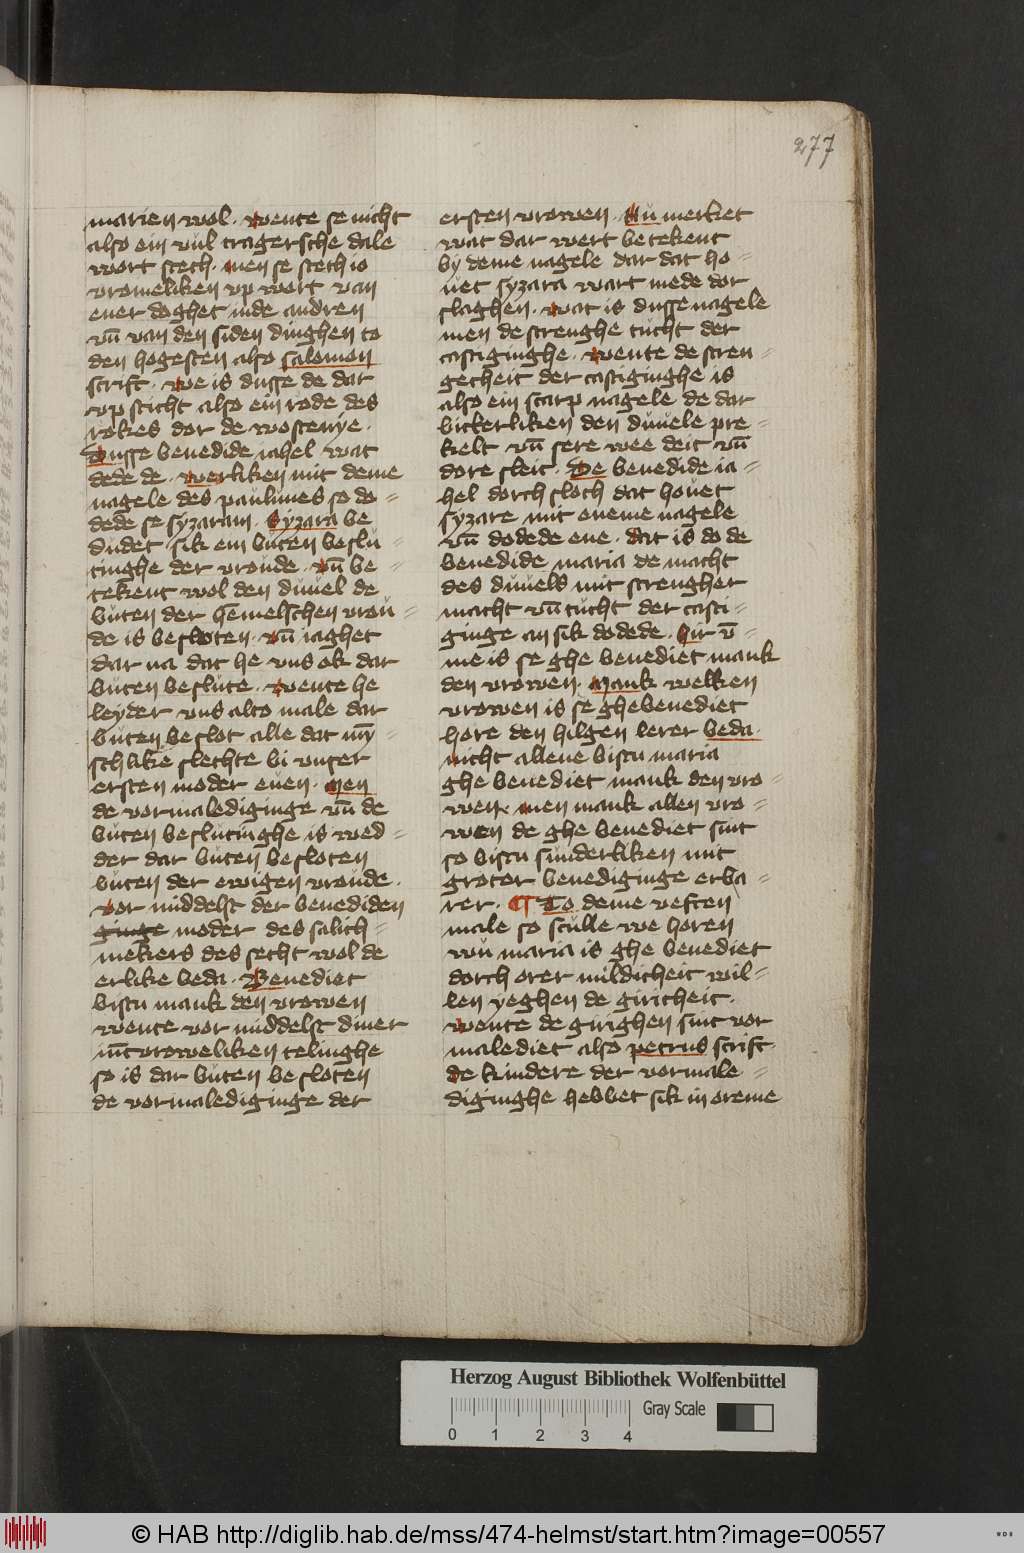 277
marien wol · wente se nicht
also ein vul tragersche dale
wort stech · men se stech io
vromeliken vp wort van
ener doghet inde andren
vn̄ van den siden dinghen to
den hogesten also salomon
scrift · we is dusse de dar
vp sticht also ein rode des
rokes dor de wostenye ·
Dusse benedide iahel wat
dede de · werliken mit deme
nagele des paulunes so do=
dede se syzaram · Syzara be
dudet sik ein buten beslu=
tinghe der vroude · vn̄ be=
tekent wol den duuel de
buten der hemelschen vrou=
de is besloten · vn̄ iaghet
dar na dat he vns ok dar
buten beslute · wente he
leyder vns alto male dar
buten beslot alle dat mȳ=
schlike slechte bi vnser
ersten moder euen · Men
de vormalediginge vn̄ de
buten beslutinghe is wed=
der dar buten besloten
buten der ewigen vroude ·
vor middelst der benediden
ginge moder des salich=
mekers des secht wol de
erlike beda · Benediet
bistu mank den vrowen
wente vor middelst diner
iūcvroweliken telinghe
so is dar buten besloten
de vormalediginge der
ersten vrowen · Nu merket
wat dar wert betekent
by deme nagele dar dat ho=
uet syzara wart mede dor
slaghen · wat is dusse nagele
men de strenghe tucht der
castiginghe · wente de stren=
gecheit der castiginghe is
also ein scarp nagele de dar
bitterliken den duuele pre=
kelt vn̄ sere wee deit vn̄
dore sleit · De benedide ia=
hel dorch sloch dat houet
syzare mit eneme nagele
vn̄ dodede ene · dat is do de
benedide maria de macht
des duuels mit strengher
macht vn̄ tucht der casti=
ginge an sik dodede · hir v̄=
me is se ghe benediet mank
den vrowen · Mank welken
vrowen is se ghebenediet
hore den hilgen lerer beda ·
nicht allene bistu maria
ghe benediet mank den vro=
wen · men mank allen vro=
wen de ghe benediet sint
so bistu sunderliken mit
groter benediginge erba=
rer · ¶ To deme vesten
male so sculle we horen
wu maria is ghe benediet
dorch orer mildicheit wil=
len yeghen de giricheit ·
wente de girighen sint vor
malediet also petrus scrift ·
de kindere der vormale=
diginghe hebbet sik in oreme
Herzog August Bibliothek Wolfenbüttel
Gray Scale
0 1 2 3 4
© HAB http://diglib.hab.de/mss/474-helmst/start.htm?image=00557
WDB